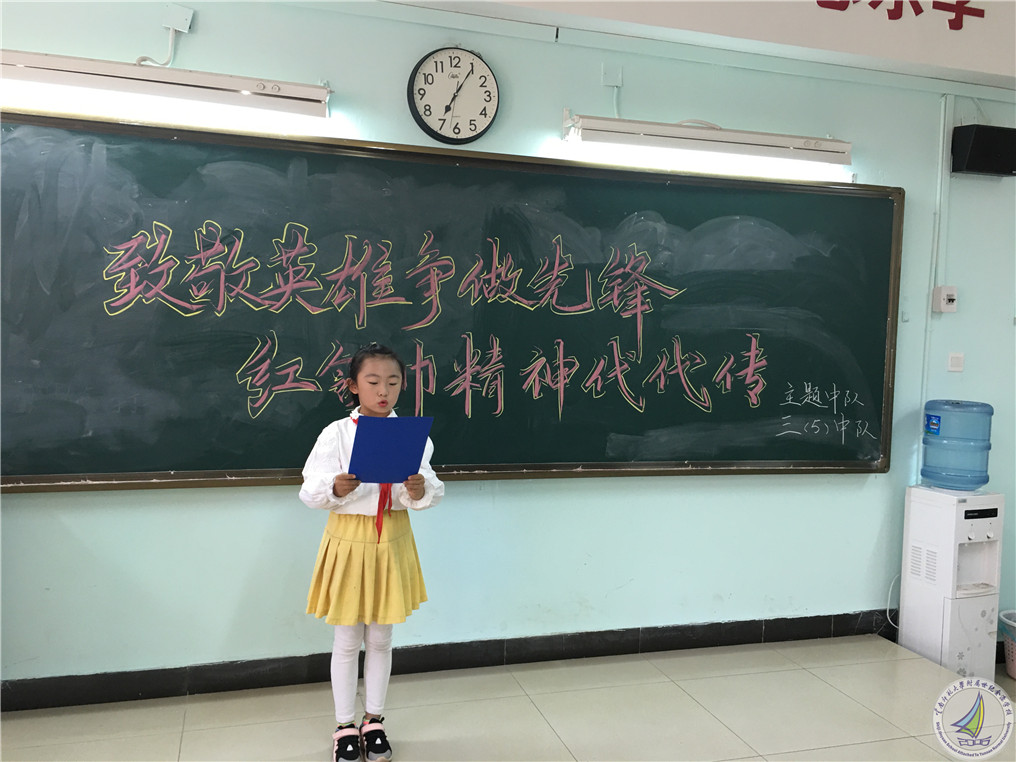 致敬英雄争做先锋
红领巾精神代代传
主题中队
三(5)中队
12
1
2
3
4
5
6
7
8
9
10
11